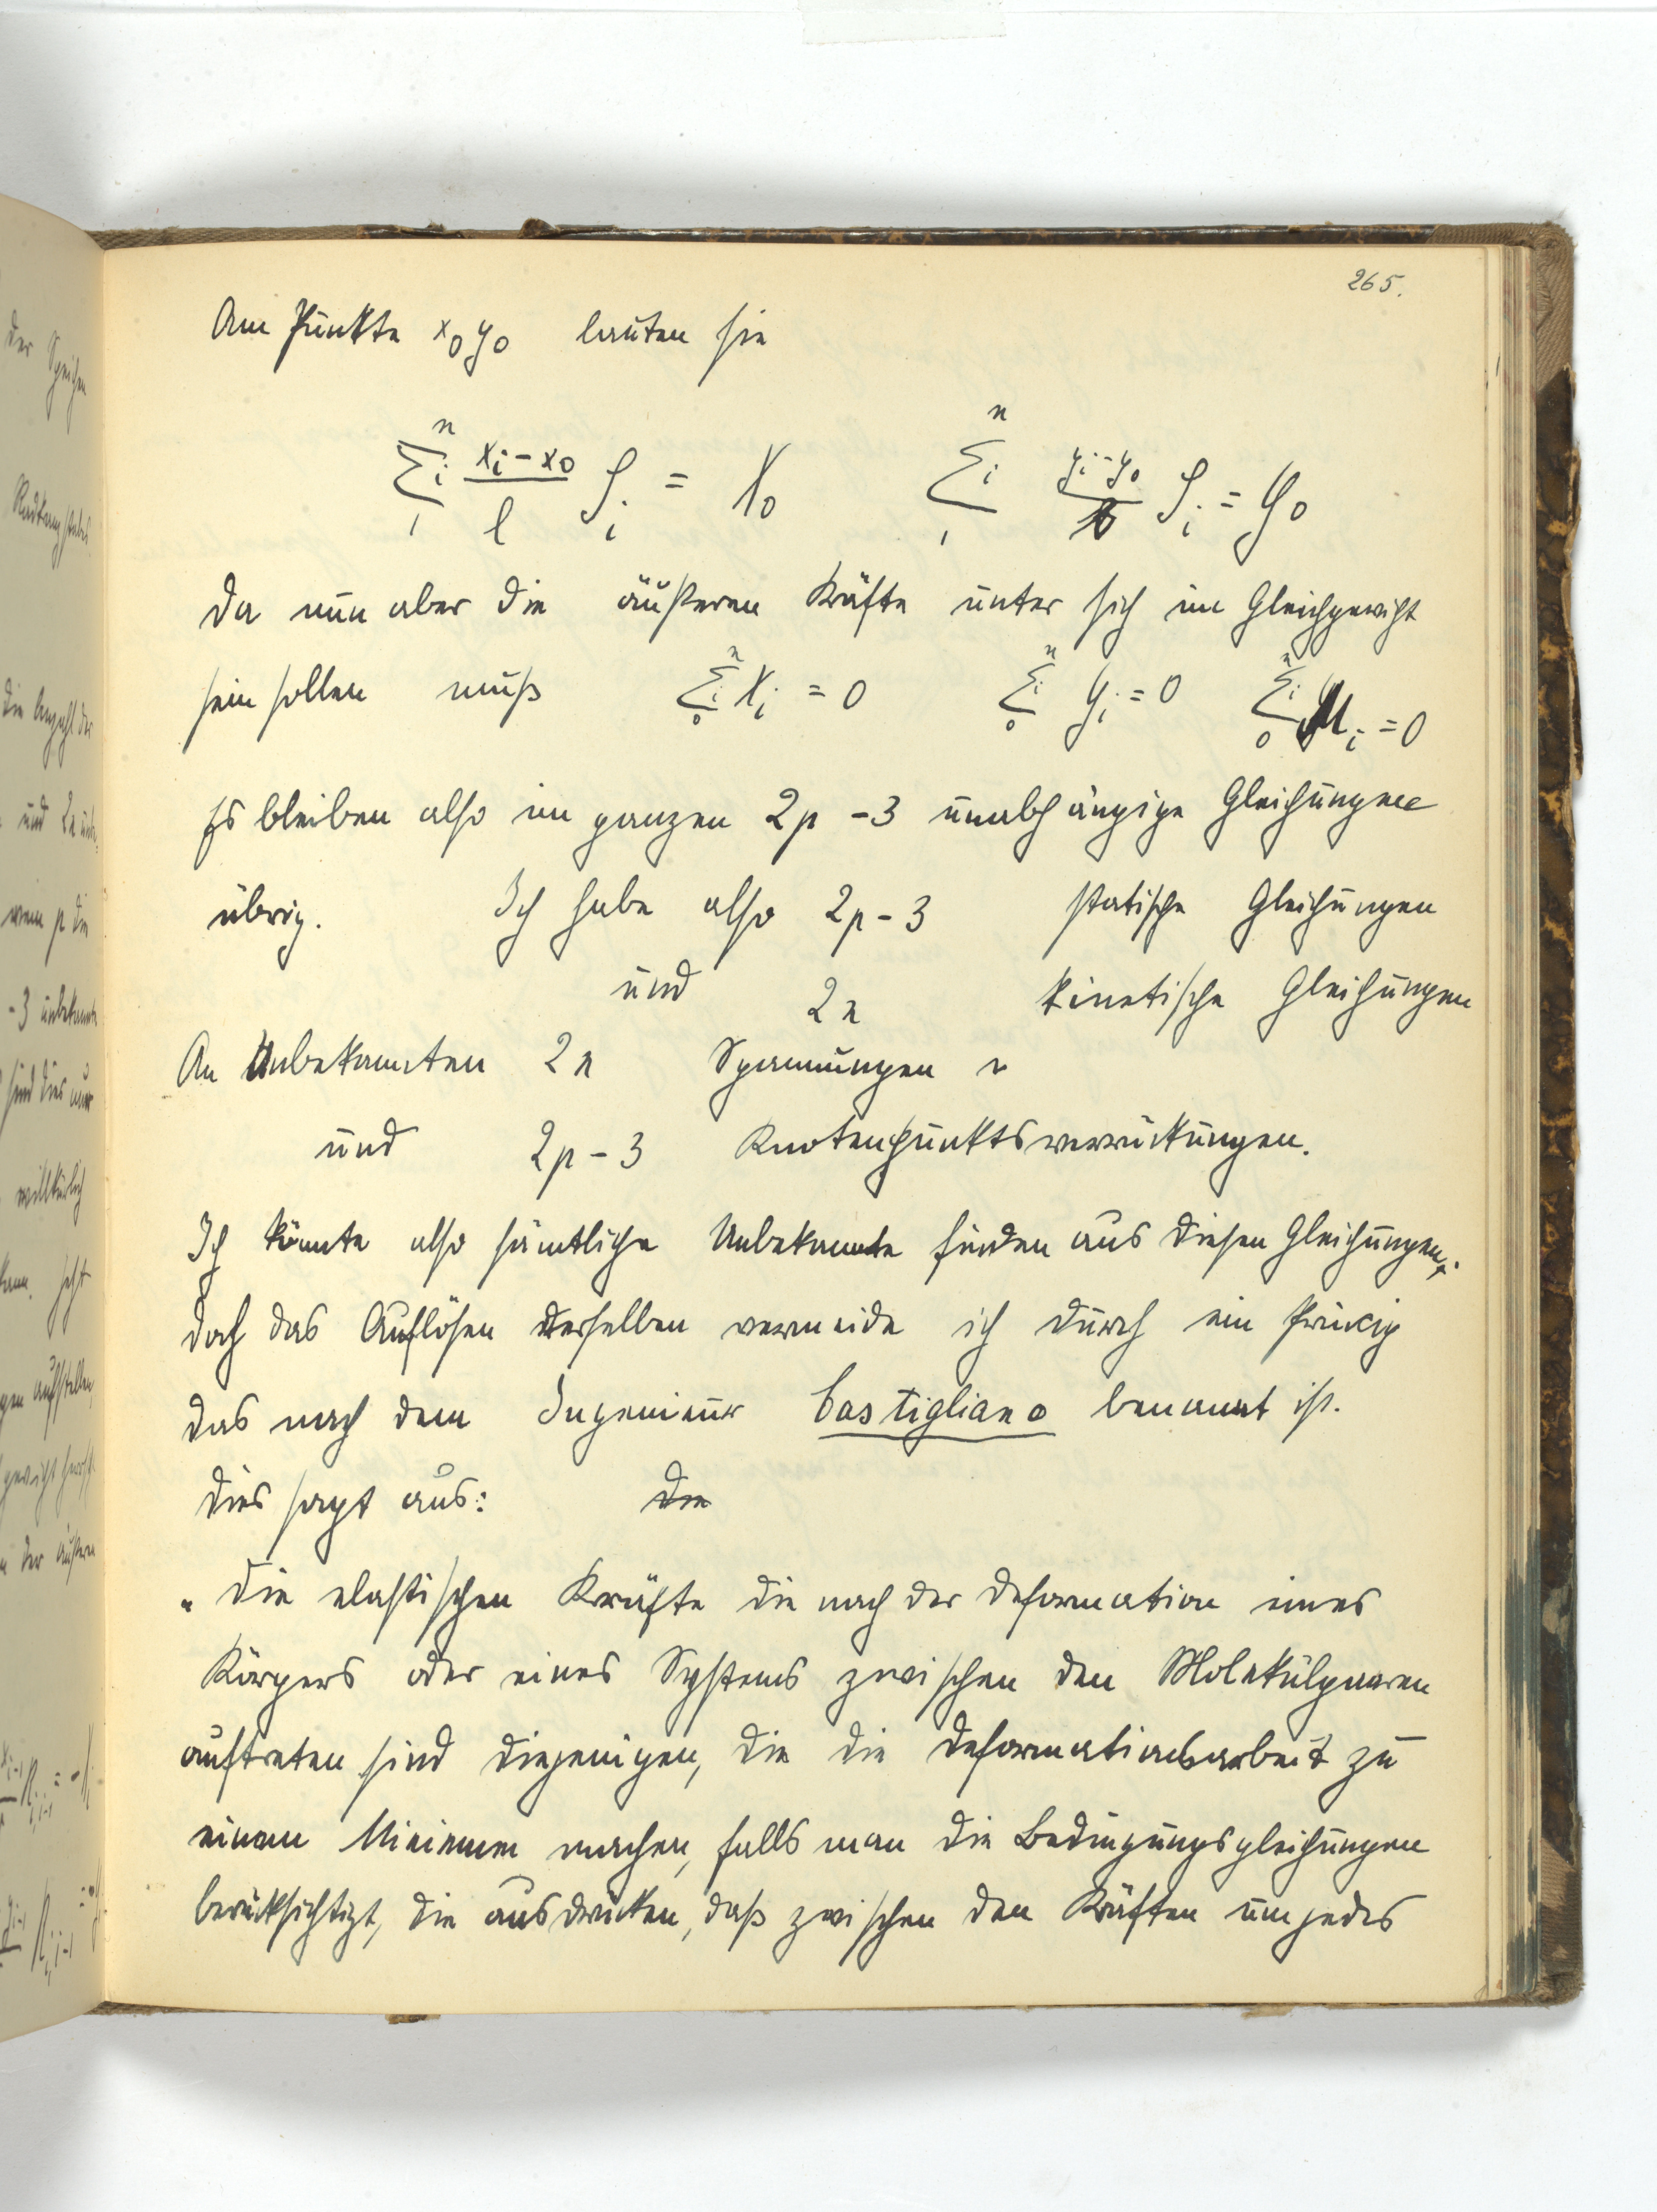 265.
Am Punkte x₀y₀ lauten sie
∑ᵢ₁ⁿ (xᵢ - x₀)/l Sᵢ = X₀   ∑ᵢ₁ⁿ (yᵢ - y₀)/l Sᵢ = Y₀
Da nun aber die äußeren Kräfte unter sich im Gleichgewicht
sein sollen muß ∑ᵢ₀ⁿ Xᵢ = 0   ∑ᵢ₀ⁿ Yᵢ = 0   ∑ᵢ₀ⁿ Mᵢ = 0
Es bleiben also im ganzen 2p - 3 unabhängige Gleichungen
übrig. Ich habe also 2p - 3 statische Gleichungen
und 2n kinetische Gleichungen
An Unbekannten 2n Spannungen
und 2p - 3 Knotenpunktsverrückungen.
Ich könnte also sämtliche Unbekannte finden aus diesen Gleichungen.
Doch das Auflösen derselben vermeide ich durch ein Prinzip
das nach dem Ingenieur Castigliano benannt ist.
Dies sagt aus: Die
„ Die elastischen Kräfte die nach der Deformation eines
Körpers oder eines Systems zwischen den Molekülpaaren
auftreten sind diejenigen, die die Deformationsarbeit zu
einem Minimum machen, falls man die Bedingungsgleichungen
berücksichtigt, die ausdrücken, daß zwischen den Kräften um jedes